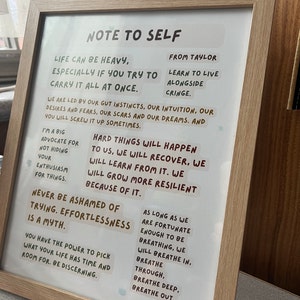 NOTE TO SELF
LIFE CAN BE HEAVY,
ESPECIALLY IF YOU TRY TO
CARRY IT ALL AT ONCE.
FROM TAYLOR
LEARN TO LIVE
ALONGSIDE
CRINGE.
WE ARE LED BY OUR GUT INSTINCTS, OUR INTUITION, OUR
DESIRES AND FEARS, OUR SCARS AND OUR DREAMS. AND
YOU WILL SCREW IT UP SOMETIMES.
I'M A BIG
ADVOCATE FOR
NOT HIDING
YOUR
ENTHUSIASM
FOR THINGS.
HARD THINGS WILL HAPPEN
TO US. WE WILL RECOVER. WE
WILL LEARN FROM IT. WE
WILL GROW MORE RESILIENT
BECAUSE OF IT.
NEVER BE ASHAMED OF
TRYING. EFFORTLESSNESS
IS A MYTH.
AS LONG AS WE
ARE FORTUNATE
ENOUGH TO BE
BREATHING, WE
WILL BREATHE IN,
BREATHE
THROUGH,
BREATHE DEEP,
BREATHE OUT
YOU HAVE THE POWER TO PICK
WHAT YOUR LIFE HAS TIME AND
ROOM FOR. BE DISCERNING.